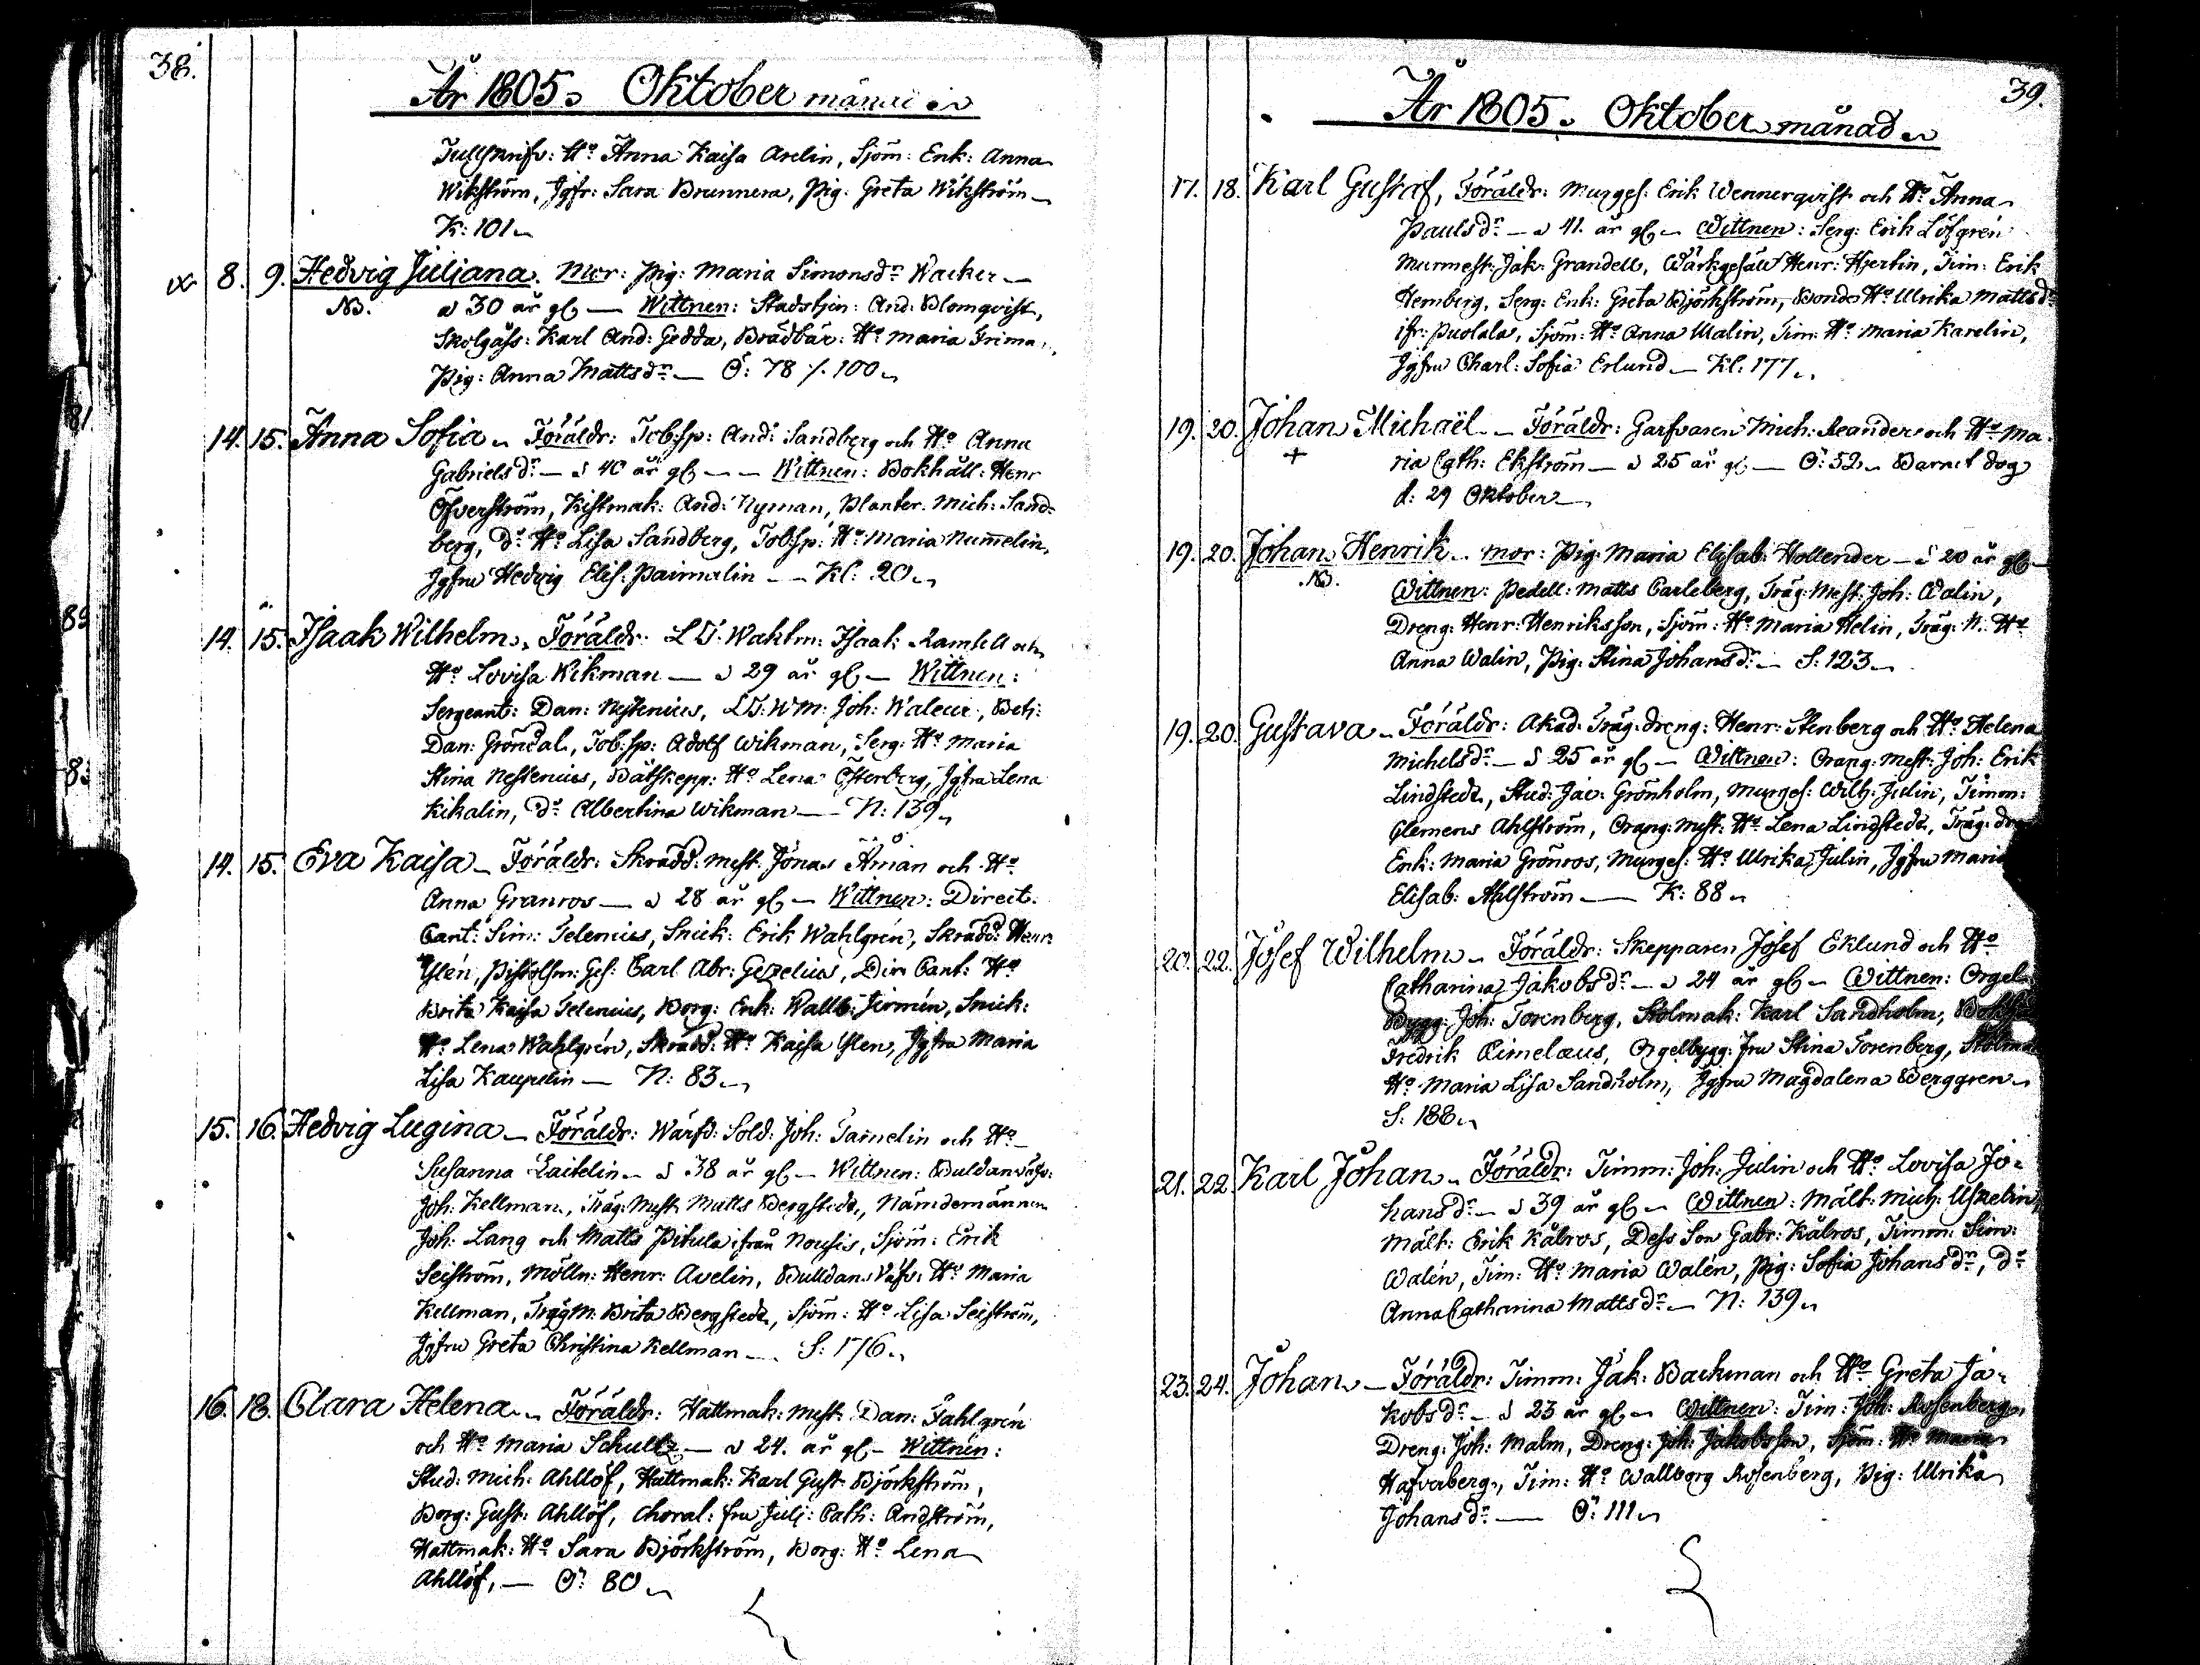 38.
År 1805. Oktober månad
Tullskrifv: H:o Anna Kaisa Arelin, Sjöm: Enk: Anna
Wikström, Jgfr: Sara Brunnera, Pig: Greta Wikström
K: 101
8. 9. Hedvig Juliana. Mor: Pig: Maria Simonsd:r Wacker
NB. a 30 år gl — Wittnen: Stadstjen: And: Blomqvist,
Skolgåss: Karl And: Gedda, Brädbär: H:o Maria
Pig: Anna Mattsd:r — Ö: 78 /. 100
14. 15. Anna Sofia. Föräldr: Tob:sp: And: Sandberg och H:o Anna
Gabrielsd:r — a 40 år gl — Wittnen: Bokhåll: Henr
Öfverström, Kistmak: And: Nyman, Planter. Mich: Sand=
berg, D:o H:o Lisa Sandberg, Tob:sp: H:o Maria Num̄elin,
Jgfru Hedvig Elis: Paimalin — Kl: 20
14. 15. Isaak Wilhelm. Föräldr: L T: Waktm: Isaak Ramsell och
H:o Lovisa Wikman — a 29 år gl — Wittnen:
Sergeant: Dan: Nestenius, LT: WM: Joh: Waleur, Betj:
Dan: Gröndal, Tob:sp: Adolf Wikman, Serg: H:o Maria
Stina Nestenius, Båtskepp: H:o Lena Österberg, Jgfru Lena
Kikalin, D:o Albertina Wikman — N: 139
14. 15. Eva Kaisa — Föräldr: Skrädd: mest. Jonas Åman och H:o
Anna Granros — a 28 år gl — Wittnen: Direct:
Cant: Sim: Telenius, Snick: Erik Wahlgrén, Skrädd: Henr:
Ylén, Pistolsm: Ges: Carl Abr: Gezelius, Dir Cant: H:o
Brita Kaisa Telenius, Borg: Enk: Wallb: Jirmén, Snick:
H:o Lena Wahlgrén, Skrädd: H:o Kaisa Ylen, Jgfru Maria
Lisa Kaupelin — N: 83
15. 16. Hedvig Lugina — Föräldr: Wärfd: Sold: Joh: Tam̄elin och H:o
Susanna Laitelin — a 38 år gl — Wittnen: Buldansväfv:
Joh: Kellman, Träg: Mest Matts Bergstedt, Nämdemännen
Joh: Lang och Matts Pitula ifrån Nousis, Sjöm: Erik
Seiström, Mölln: Henr: Avelin, Bulldans Väfv: H:o Maria
Kellman, TrägM: Brita Bergstedt, Sjöm: H:o Lisa Seiström,
Jgfru Greta Christina Kellman — S: 176
16. 18. Clara Helena. Föräldr: Hattmak: mest: Dan: Fahlgrén
och H:o Maria Schultz — a 24. år gl — Wittnen:
Stud: Mich: Ahllöf, Hattmak: Karl Gust Björkström,
Borg: Gust: Ahllöf, Choral: fru Julj: Cath: Andström,
Hattmak: H:o Sara Björkström, Borg: H:o Lena
Ahllöf, — Ö: 80
39.
År 1805. Oktober månad
17. 18. Karl Gustaf, Föräldr: Murges: Erik Wennerqvist och H:o Anna
Paulsd:r — a 41. år gl — Wittnen: Serg: Erik Löfgrén
Murmest: Jak: Grandell, Wärkgesäll Henr: Hjertin, Tim: Erik
Hemberg, Serg: Enk: Greta Björkström, Bonde H:o Ulrika Mattsd:r
ifr: Puolala, Sjöm: H:o Anna Malin, Tim: H:o Maria Karelin,
Jgfru Charl: Sofia Erlund — Kl: 177
19. 20. Johan Michaël — Föräldr: Garfvaren Mich: Reander och H:o Ma=
+ ria Cath: Ekström — a 25 år gl — Ö: 52 Barnet dog
d: 29 Oktober
19. 20. Johan Henrik. Mor: Pig: Maria Elisab: Hollender — a 20 år gl
NB. Wittnen: Pedell: Matts Carleberg, Träg: Mest. Joh: Walin,
Dreng: Henr: Henriksson, Sjöm: H:o Maria Helin, Träg: M. H:o
Anna Walin, Pig: Stina Johansd:r — S: 123
19. 20. Gustava — Föräldr: Akad: Träg: dreng: Henr: Stenberg och H:o Helena
Michelsd:r — a 25 år gl — Wittnen: Orang: mest: Joh: Erik
Lindstedt, Stud: Jac: Grönholm, Murges: Wilh: Julin, Timm:
Clemens Ahlström, Orang: mest: H:o Lena Lindstedt, Träg:
Enk: Maria Grönros, Murges: H:o Ulrika Julin, Jgfru Maria
Elisab: Ahlström — K: 88
20. 22. Josef Wilhelm — Föräldr: Skepparen Josef Eklund och H:o
Catharina Jakobsd:r — a 24 år gl — Wittnen: Orgel=
Bygg: Joh: Torenberg, Stolmak: Karl Sandholm,
Fredrik Aimelæus, Orgelbygg: fru Stina Torenberg,
H:o Maria Lisa Sandholm, Jgfru Magdalena Berggren
S: 188
21. 22. Karl Johan. Föräldr: Timm: Joh: Julin och H:o Lovisa Jo=
hansd:r — a 39 år gl — Wittnen: Mält: Mich: Uskelin,
Mält: Erik Kålros, Dess Son Gabr: Kålros, Timm: Sim:
Walén, Tim: H:o Maria Walén, Pig: Sofia Johansd:r, D:o
Anna Catharina Mattsd:r — N: 139
23. 24. Johan — Föräldr: Timm: Jak: Backman och H:o Greta Ja=
kobsd:r — a 23 år gl — Wittnen: Tim: Joh: Rosenberg,
Dreng: Joh: Malm, Dreng: Joh: Jakobsson, Sjöm: H:o Maria
Hafverberg, Tim: H:o Wallborg Rosenberg, Pig: Ulrika
Johansd:r — Ö: 111